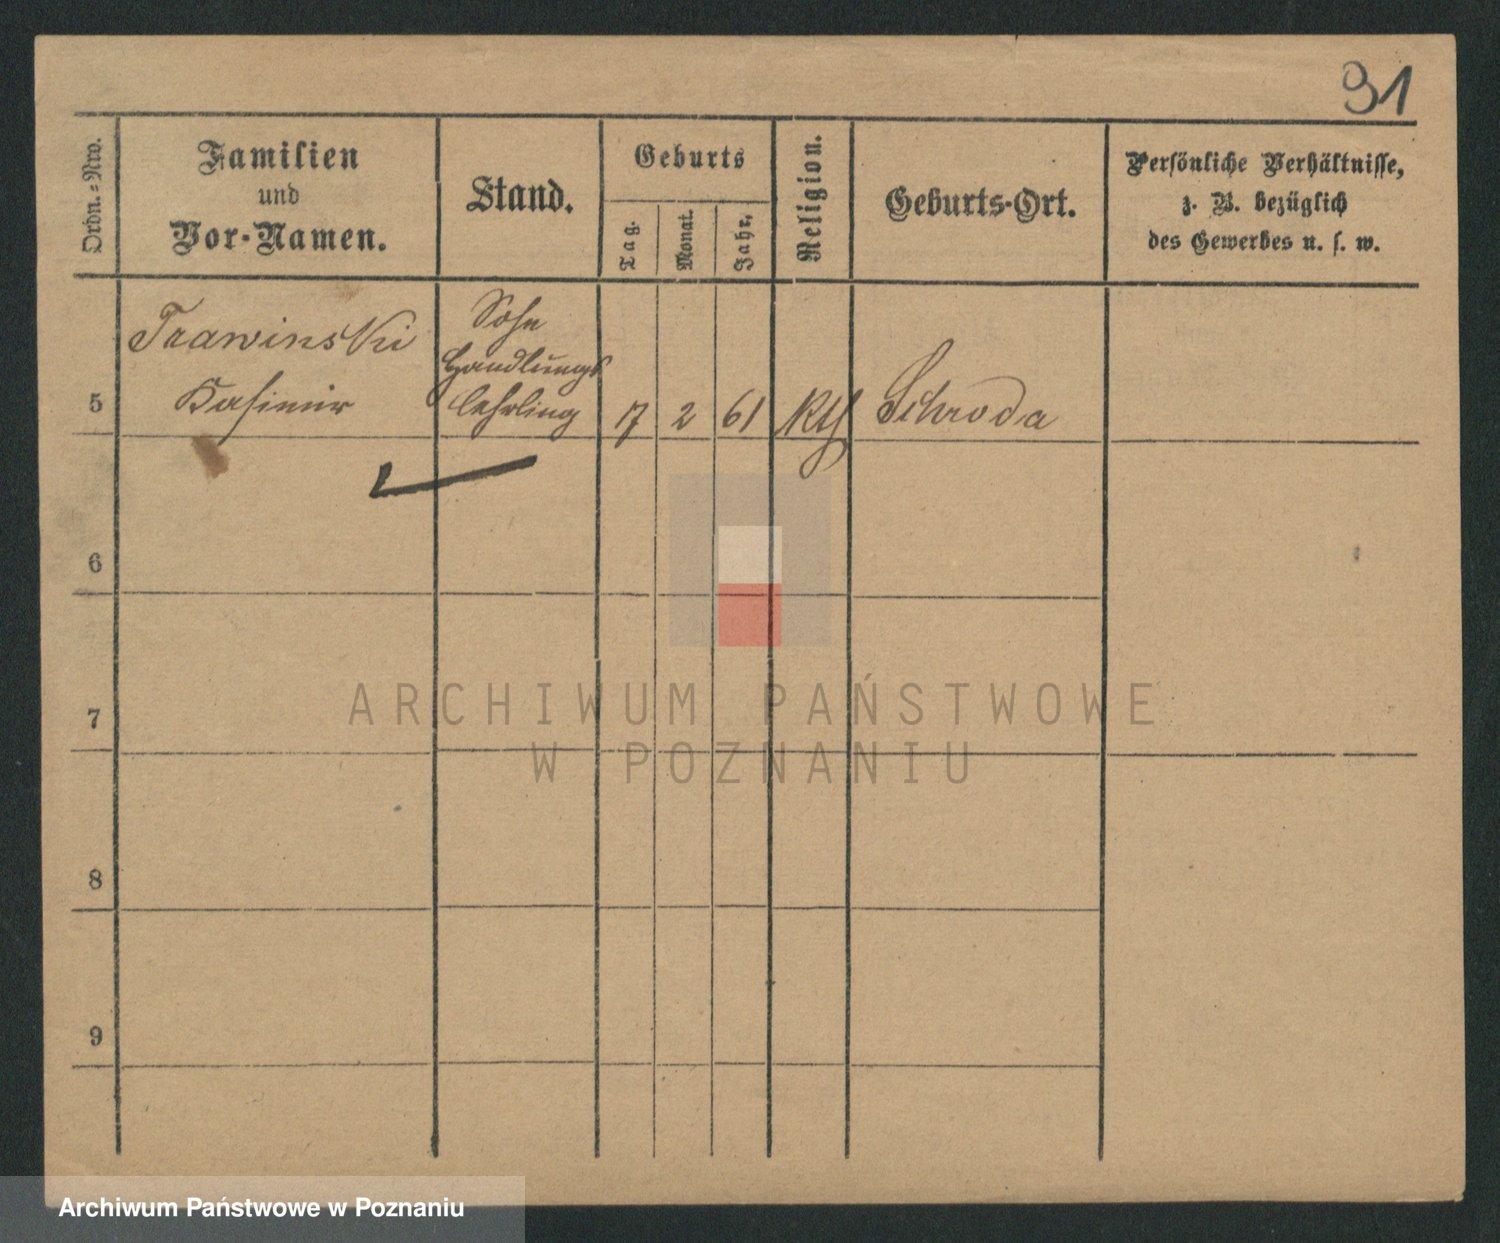 91
Ordn.-Nro.
Familien
und
Vor-Namen.
Stand.
Geburts
Tag.
Monat.
Jahr.
Religion.
Geburts-Ort.
Persönliche Verhältnisse,
z. B. bezüglich
des Gewerbes u. s. w.
5
Trawinski
Kasimir
Sohn
Handlungs
lehrling
17
2
61
Kth
Schroda
6
7
8
9
ARCHIWUM PAŃSTWOWE
W POZNANIU
Archiwum Państwowe w Poznaniu